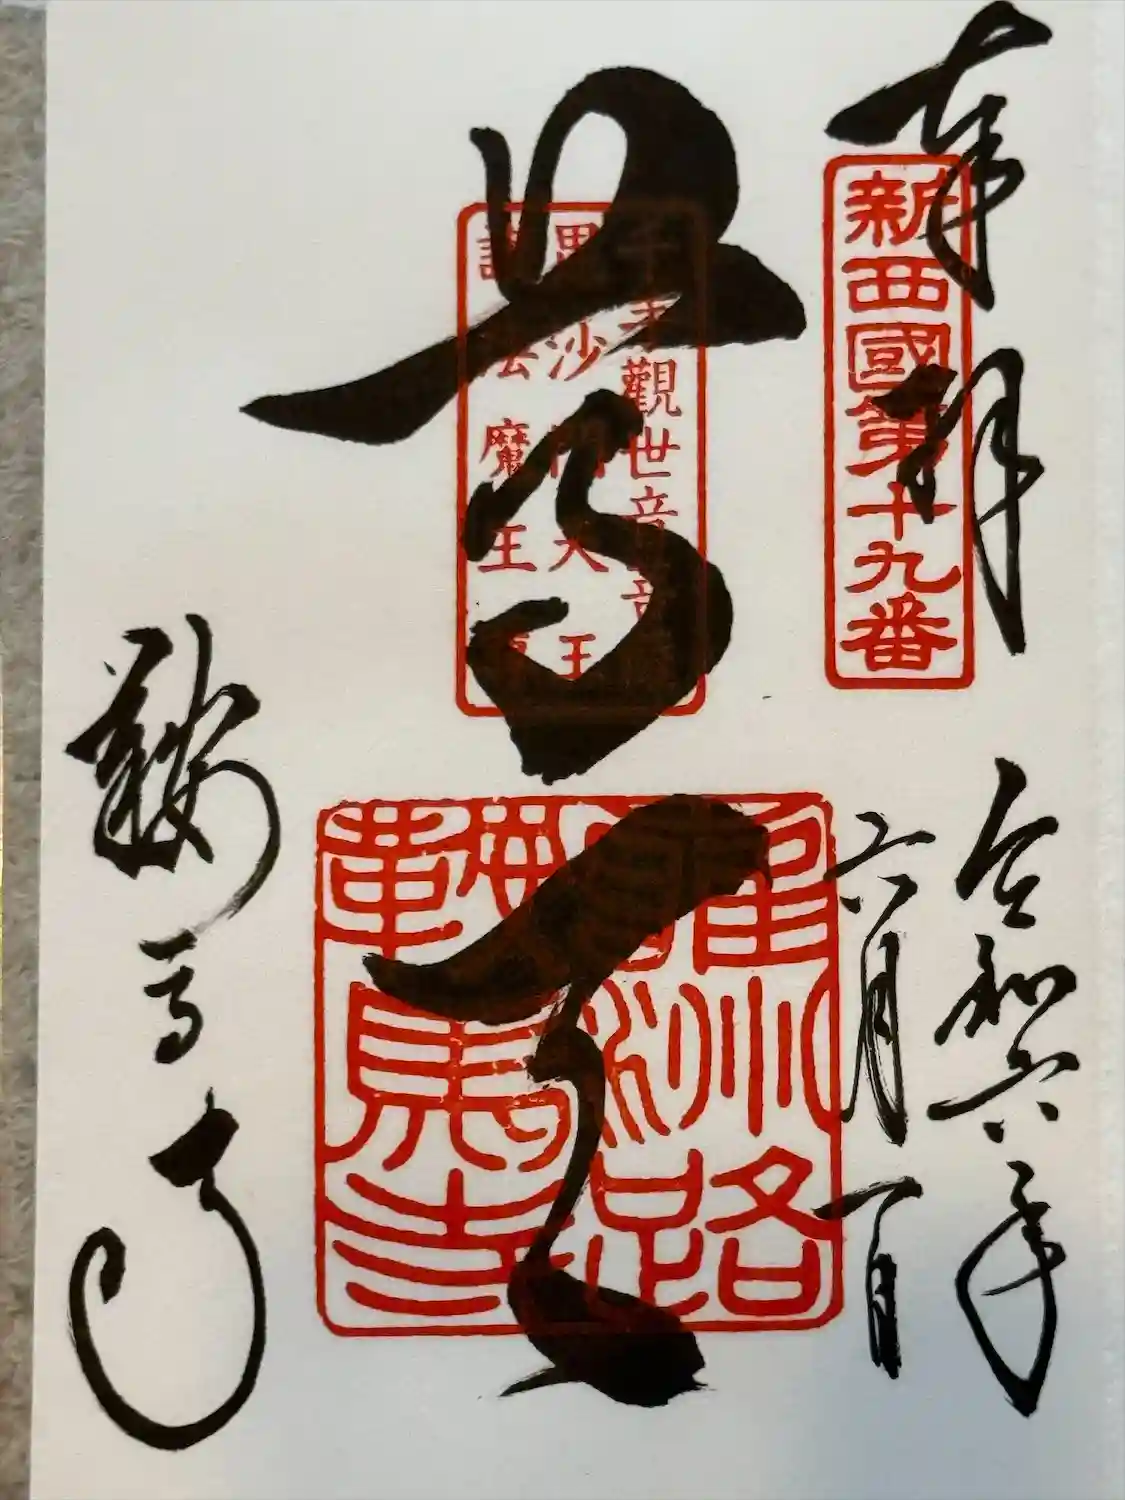 奉拝
新西國第十九番
令和六年
六月一日
尊天
千手觀世音菩薩
毘沙門天王
護法魔王尊
雍州路
鞍馬寺
鞍馬寺